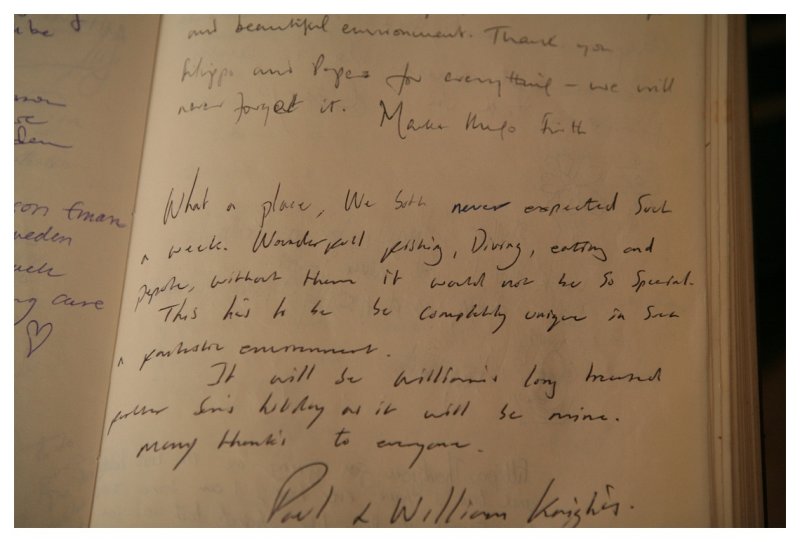 ibe
and beautiful environment. Thank you
Filippo and for everything – we will
never forget it. Hugo Firth
What a place, We both never expected Such
a week. Wonderfull fishing, Diving, eating and
people, without them it would not be So Special.
This has to be be completly unique in Such
a fantastic environment.
It will be William's long
father Son's as it will be mine.
many thanks to everyone.
Paul & William Knights.
eden
ing care